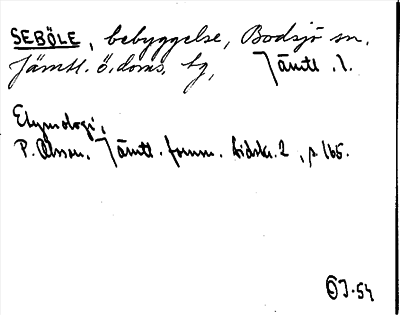 SEBÖLE, bebyggelse, Bodsjö sn,
Jämtl. ö. doms. tg, Jämtl. l.
Etymologi,
P. Olsson. Jämtl. fornm. tidskr. 2, s 165.
OJ-54